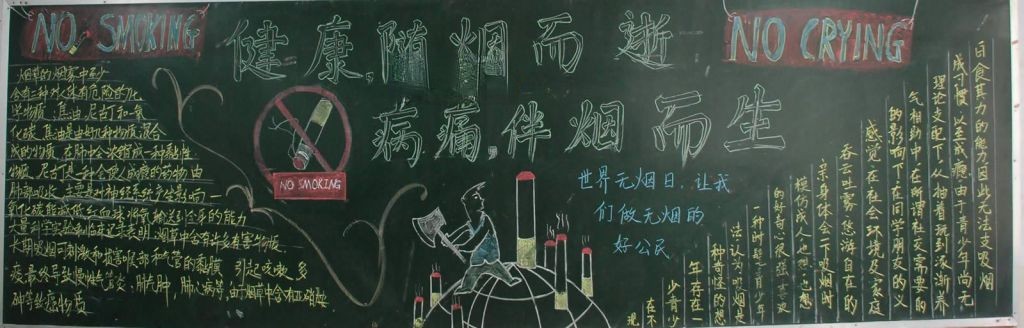 NO SMOKING
健康,随烟而逝
病痛,伴烟而生
NO CRYING
NO SMOKING
世界无烟日,让我
们做无烟的
好公民
烟草的烟雾中至少
含有三种对人体有危险的化
学物质,焦油,尼古丁和一氧
化碳,焦油是由好几种物质混合
成的物质,在肺中会浓缩成一种黏性
物质,尼古丁是一种会使人成瘾的药物,由
肺部吸收,主要是对神经系统产生影响,一
氧化碳能减低红血球将氧输送到全身的能力
大量科学实验和临床记录表明,烟草中含有许多有害物质
长期吸烟可刺激和损害喉部和气管的黏膜,引起咳嗽,多
痰,最终导致慢性支管炎,肺气肿,肺心病等,由于烟草中含有
砷等致癌物质
日食其力的能力因此无法支吸烟
成习惯以至成瘾.由于青少年尚无
理论支配下,从相着玩到逐渐养
气相助,中在所谓社交需要的
的影响下在同学朋友的义
感觉在社会环境及家庭
吞云吐雾悠游自在的
亲身体会一下吸烟时
模仿成人也想也想
的好奇心很强喜欢
一种时髦青少年
法认为吸烟是
种奇怪的想
年存在一
少青少
在不
现